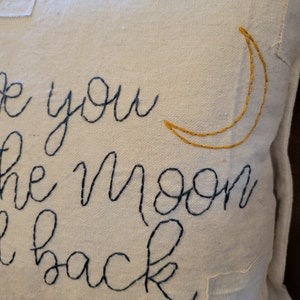 you
the Moon
back